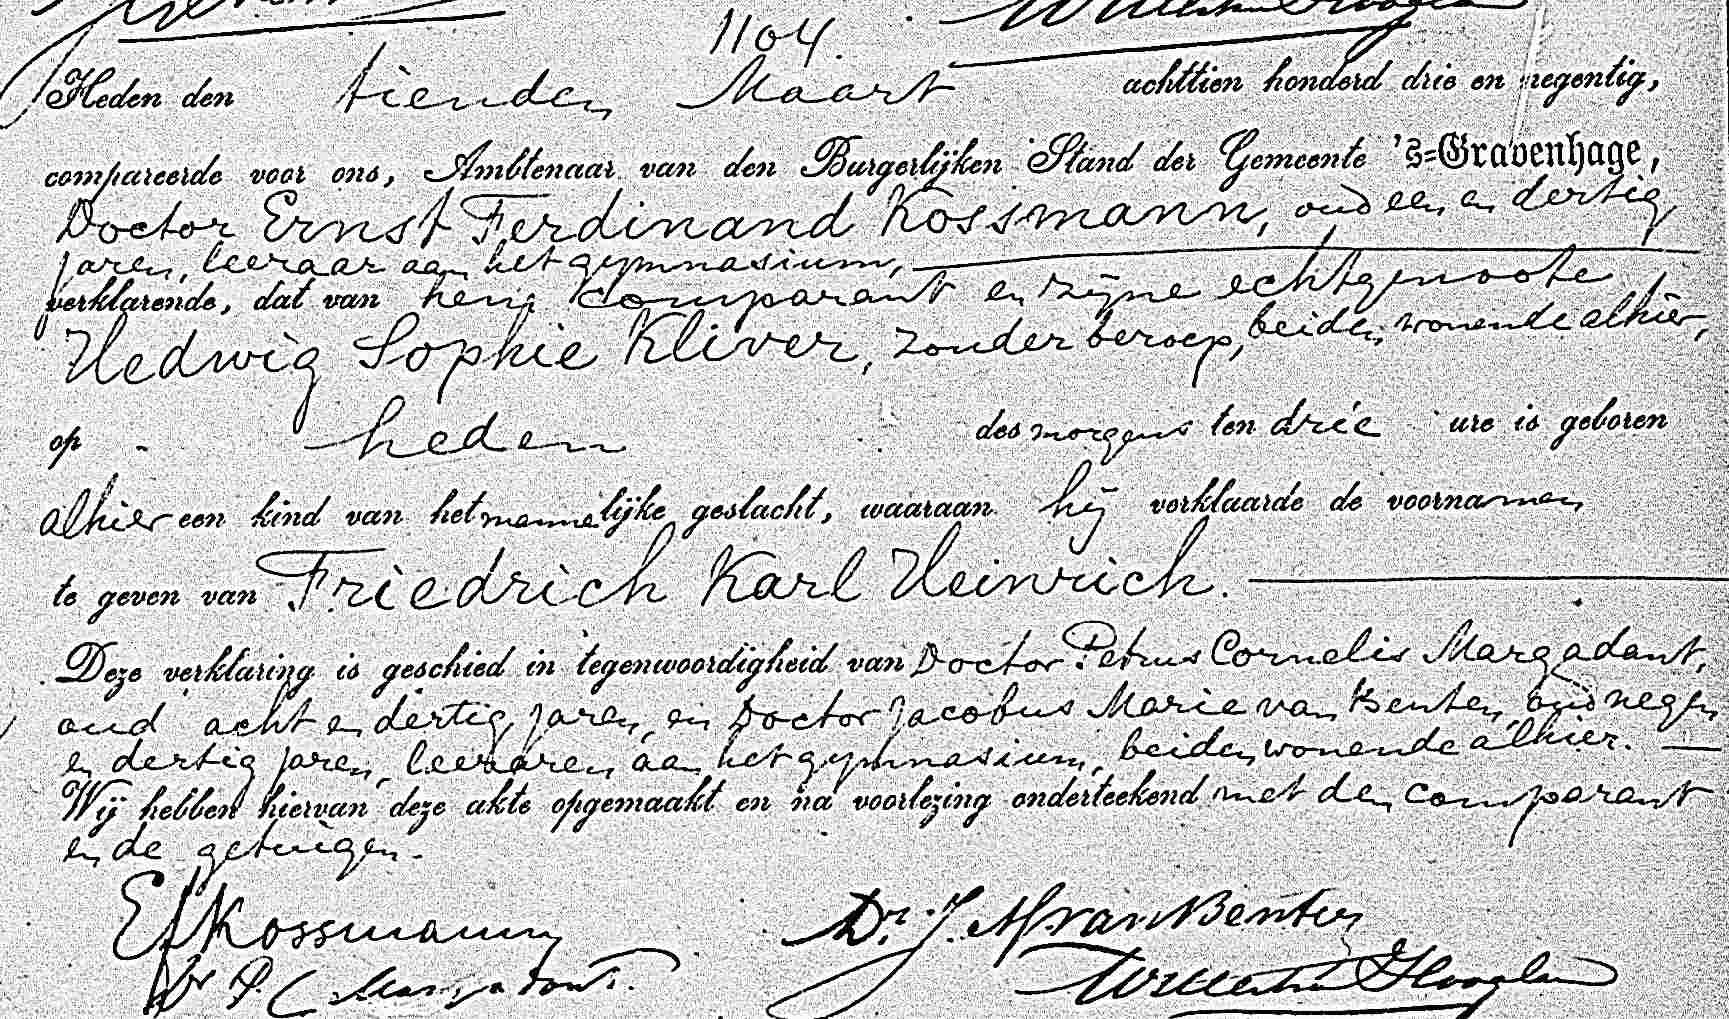 1104.
Heden den tienden Maart achttien honderd drie en negentig,
compareerde voor ons, Ambtenaar van den Burgerlijken Stand der Gemeente 's=Gravenhage,
Doctor Ernst Ferdinand Kossmann, oud een en dertig
jaren, leeraar aan het gymnasium,
verklarende, dat van hem Comparant en zijne echtgenoote
Hedwig Sophie Kliver, zonder beroep, beiden wonende alhier,
op heden des morgens ten drie ure is geboren
alhier een kind van het mannelijke geslacht, waaraan hij verklaarde de voornamen
te geven van Friedrich Karl Heinrich.
Deze verklaring is geschied in tegenwoordigheid van Doctor Petrus Cornelis Margadant,
oud acht en dertig jaren, en Doctor Jacobus Marie van Benten, oud negen
en dertig jaren, leeraren aan het gymnasium, beiden wonende alhier.
Wij hebben hiervan deze akte opgemaakt en na voorlezing onderteekend met den comparant
en de getuigen.
EfKossmann Dr. J. M. van Benten
Dr P. C. Margadant.